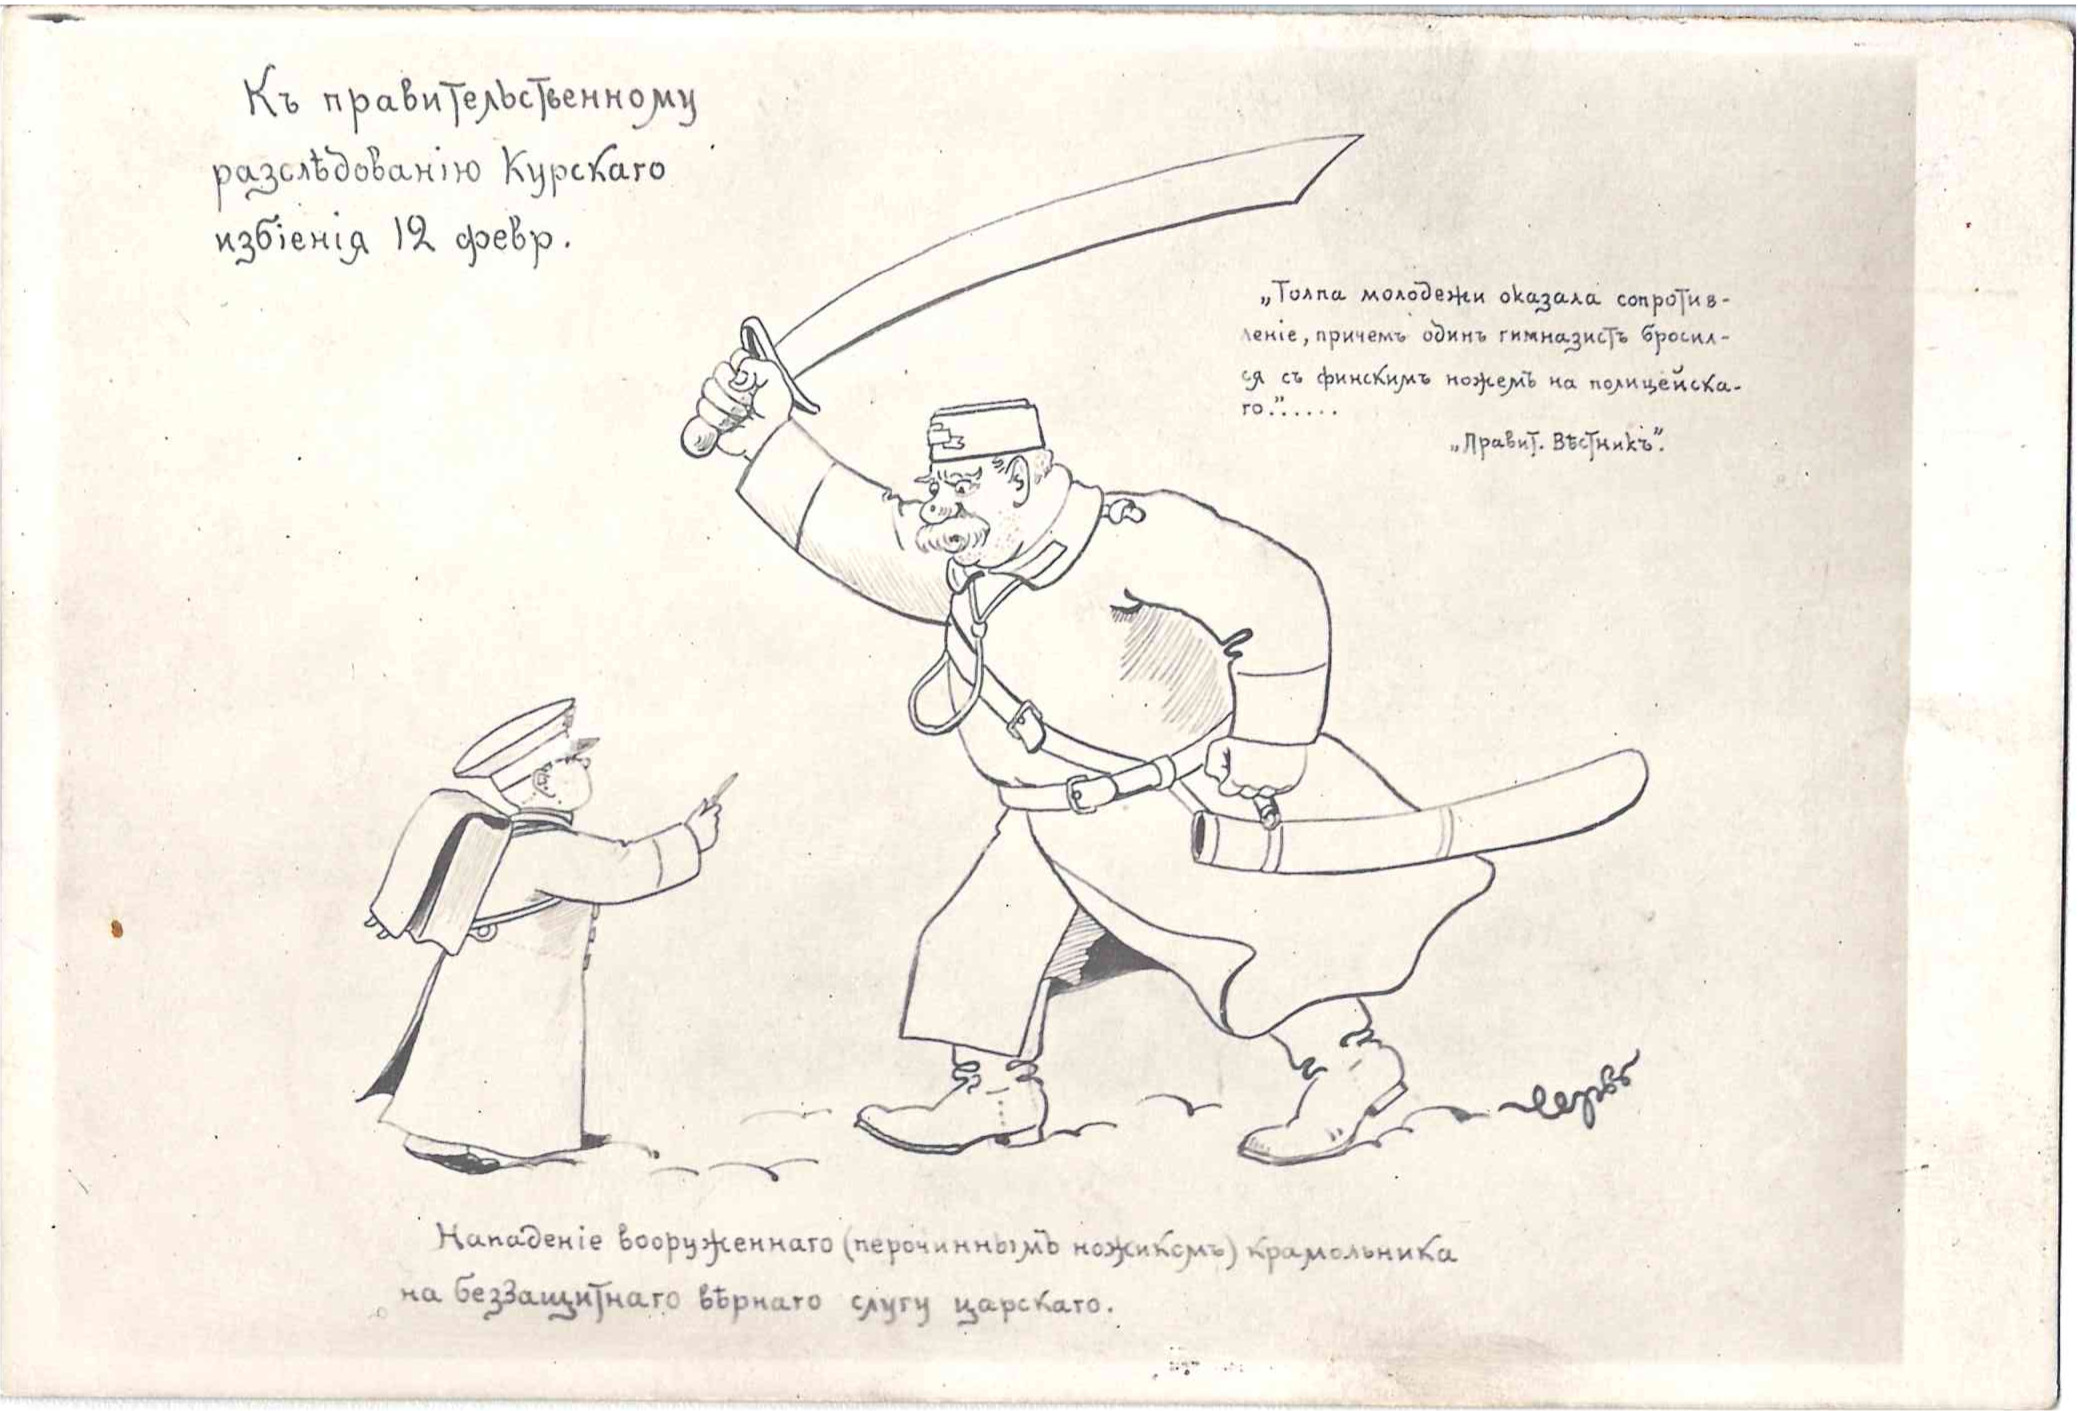 Къ правительственному
разслѣдованію Курскаго
избіенія 12 февр.
„Толпа молодежи оказала сопротив-
леніе, причемъ одинъ гимназистъ бросил-
ся съ финскимъ ножемъ на полицейска-
го.”.....
„Правит. Вѣстникъ”.
Нападеніе вооруженнаго (перочиннымъ ножикомъ) крамольника
на беззащитнаго вѣрнаго слугу царскаго.